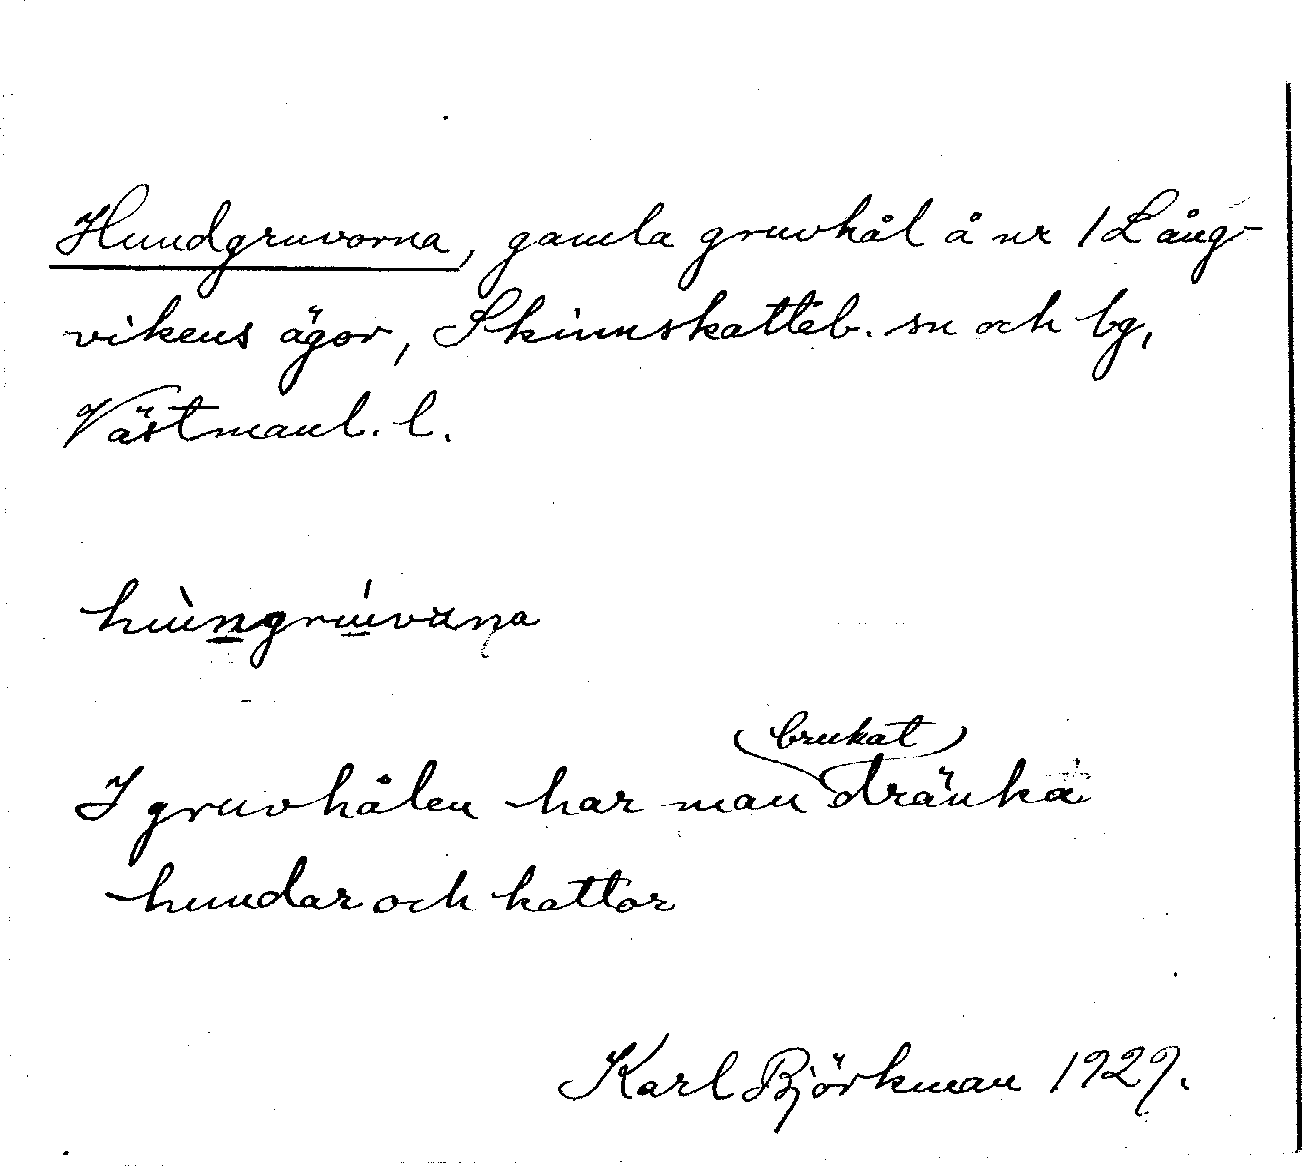 Hundgruvorna, gamla gruvhål å nr 1 Lång-
vikens ägor, Skinnskatteb. sn och bg,
Västmanl. l.
hùngrúvana
brukat
I gruvhålen har man dränka
hundar och kattor
Karl Björkman 1929.